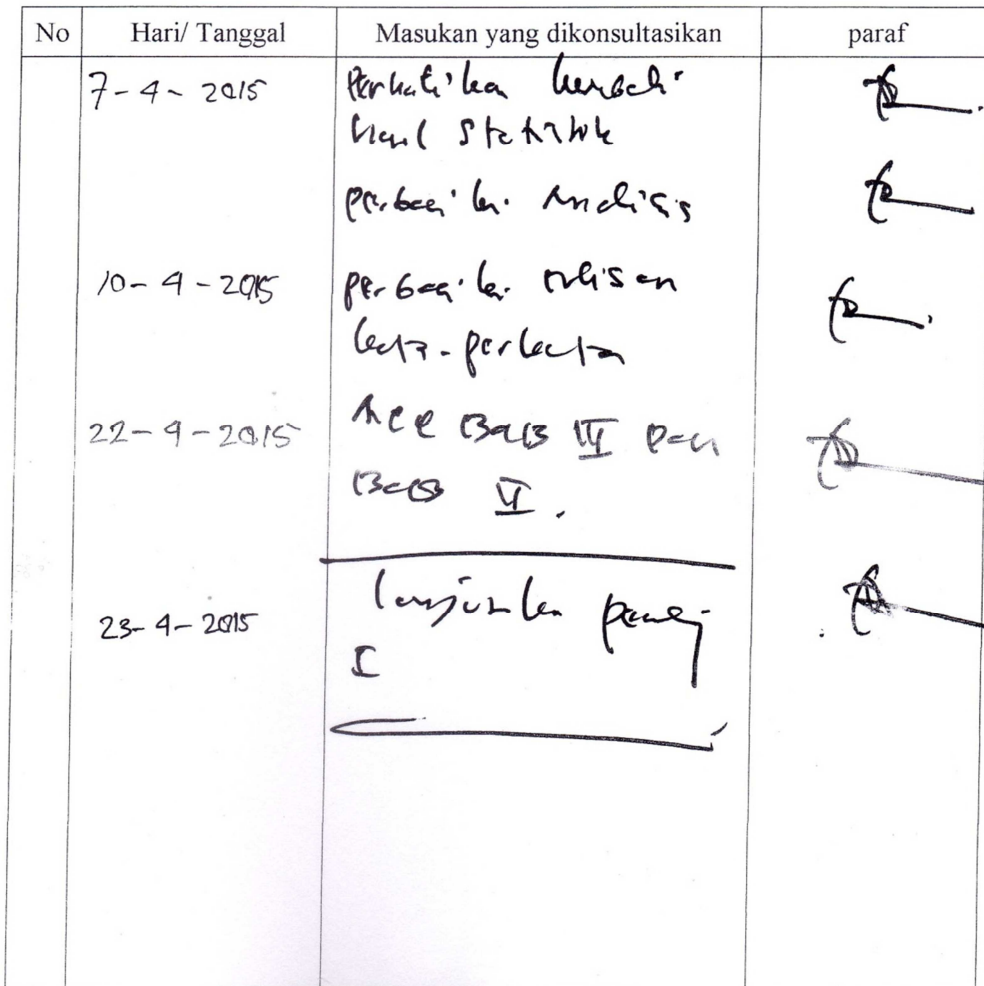 No Hari/ Tanggal Masukan yang dikonsultasikan paraf
7-4-2015 Perhatikan kembali
hasil Statistik
perbaiki Analisis
10-4-2015 perbaiki tulisan
kata-perkata
22-4-2015 Acc BaB IV Dan
BaB V.
23-4-2015 lanjutkan
I